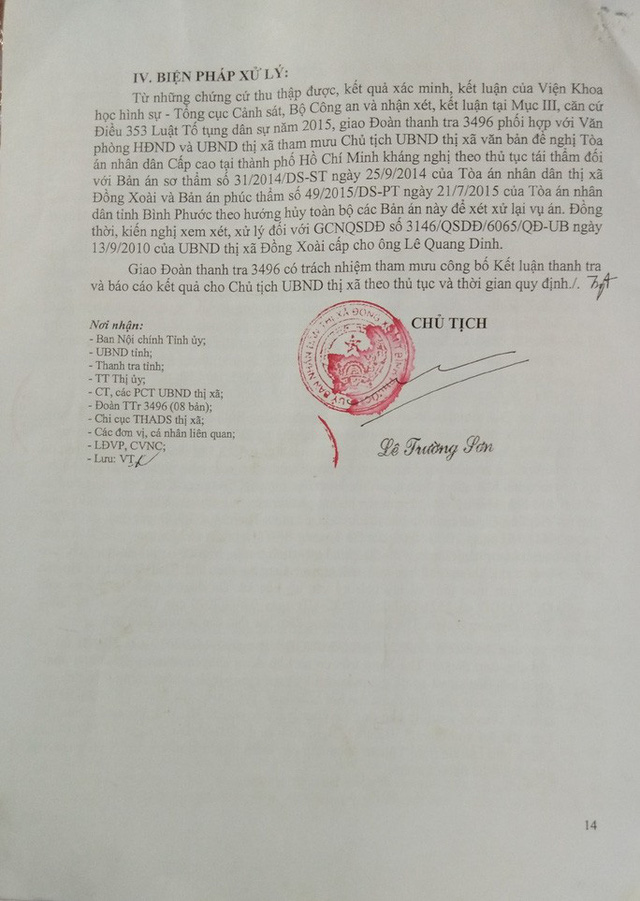 IV. BIỆN PHÁP XỬ LÝ:
Từ những chứng cứ thu thập được, kết quả xác minh, kết luận của Viện Khoa
học hình sự - Tổng cục Cảnh sát, Bộ Công an và nhận xét, kết luận tại Mục III, căn cứ
Điều 353 Luật Tố tụng dân sự năm 2015, giao Đoàn thanh tra 3496 phối hợp với Văn
phòng HĐND và UBND thị xã tham mưu Chủ tịch UBND thị xã văn bản đề nghị Tòa
án nhân dân Cấp cao tại thành phố Hồ Chí Minh kháng nghị theo thủ tục tái thẩm đối
với Bản án sơ thẩm số 31/2014/DS-ST ngày 25/9/2014 của Tòa án nhân dân thị xã
Đồng Xoài và Bản án phúc thẩm số 49/2015/DS-PT ngày 21/7/2015 của Tòa án nhân
dân tỉnh Bình Phước theo hướng hủy toàn bộ các Bản án này để xét xử lại vụ án. Đồng
thời, kiến nghị xem xét, xử lý đối với GCNQSDĐ số 3146/QSDĐ/6065/QĐ-UB ngày
13/9/2010 của UBND thị xã Đồng Xoài cấp cho ông Lê Quang Dinh.
Giao Đoàn thanh tra 3496 có trách nhiệm tham mưu công bố Kết luận thanh tra
và báo cáo kết quả cho Chủ tịch UBND thị xã theo thủ tục và thời gian quy định./.
Nơi nhận:
- Ban Nội chính Tỉnh ủy;
- UBND tỉnh;
- Thanh tra tỉnh;
- TT Thị ủy;
- CT, các PCT UBND thị xã;
- Đoàn TTr 3496 (08 bản);
- Chi cục THADS thị xã;
- Các đơn vị, cá nhân liên quan;
- LĐVP, CVNC;
- Lưu: VT
CHỦ TỊCH
Lê Trường Sơn
14